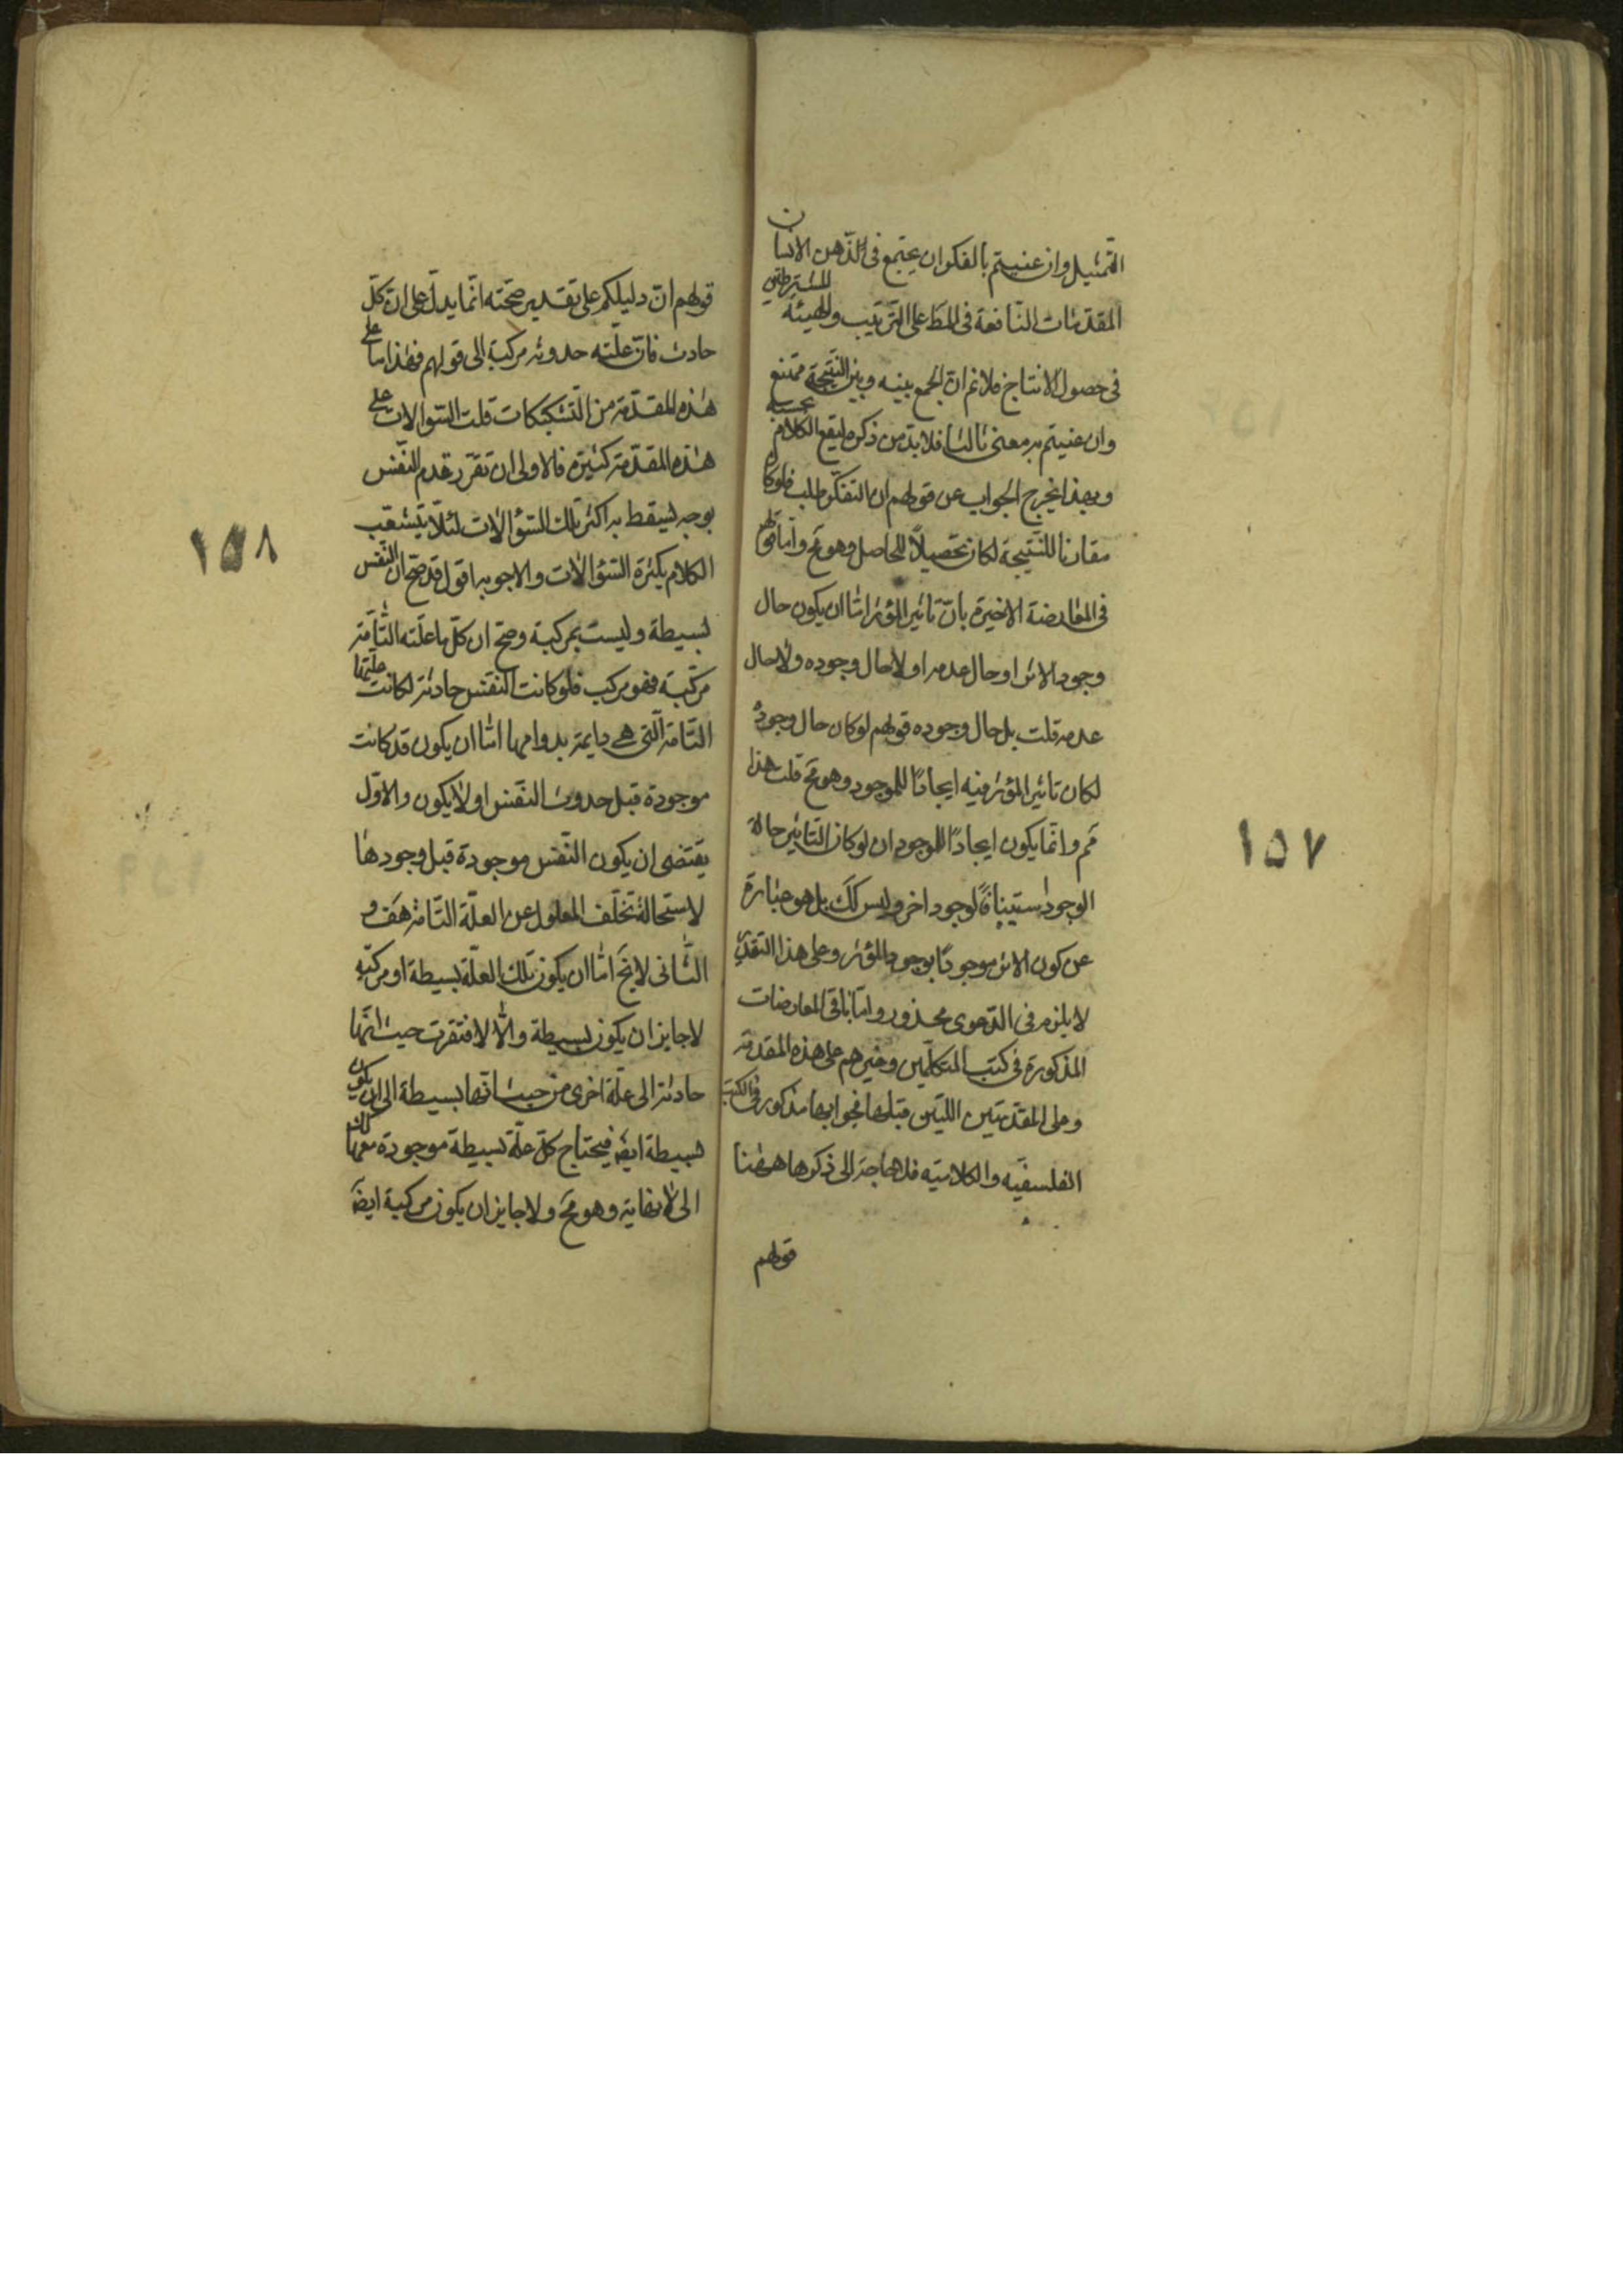 التمثيل وان عنيتم بالفكر ان يجتمع فى الذّهن الانسان
المقدّمات النّافعة فى المط على التّرتيب والهيئة المشترطتين
فى حصول الانتاج فلانم انّ الجمع بينه وبين النّتيجة ممتنع
وان عنيتم به معنى ثالثا فلابدّ من ذكره ليقع الكلام بحسبه
وبهذا يخرج الجواب عن قولهم ان التفكّر طلب فلو كان
مقارنا للنّتيجة لكان تحصيلاً للحاصل وهو مح وامّا قولهم
فى المعارضة الاخيرة بانّ تاثير المؤثر امّا ان يكون حال
وجود الاثر او حال عدمه او لا حال وجوده ولا حال
عدمه قلت بل حال وجوده قولهم لو كان حال وجوده
لكان تاثير المؤثر فيه ايجادًا للموجود وهو مح قلت هذا
مم وانّما يكون ايجادًا للموجود ان لو كان التّاثير حالة
الوجود استينافًا لوجود اخر وليس كك بل هو عبارة
عن كون الاثر موجودًا بوجود المؤثر وعلى هذا التقدير
لا يلزم فى الدّعوى محذور وامّا باقى المعارضات
المذكورة فى كتب المتكلّمين وغيرهم على هذه المقدمة
وعلى المقدمتين اللتين قبلها فجوابها مذكور فى الكتب
الفلسفيّه والكلاميّه فلا حاجة الى ذكرها ههنا
قولهم
١٥٧
قولهم انّ دليلكم على تقدير صحّته انّما يدلّ على انّ كلّ
حادث فانّ علّته حدوثه مركبة الى قولهم فهذا ما على
هذه المقدّمة من التّشكيكات قلت السّوالات على
هذه المقدّمة كثيرة فالاولى ان تقرّر قدم النّفس
بوجه يسقط به اكثر تلك السّؤالات لئلّا يتشعّب
الكلام بكثرة السّؤالات والاجوبه اقول قد صحّ ان النّفس
بسيطة وليست بمركبة وصحّ ان كلّ ما علّته التّامّة
مركّبة فهو مركب فلو كانت النفس حادثة لكانت علّتها
التّامة الّتى هى دايمة بدوامها امّا ان يكون قد كانت
موجودة قبل حدوث النفس او لا يكون والاوّل
يقتضى ان يكون النّفس موجودة قبل وجودها
لاستحالة تخلّف المعلول عن العلّة التّامة هف و
الثّانى لا يخ امّا ان يكون تلك العلّة بسيطة او مركّبه
لا جايز ان يكون بسيطة والّا لافتقرت حيث انّها
حادثة الى علّة اخرى من حيث انّها بسيطة الى ان يكون
بسيطة ايضا فيحتاج كلّ علّة بسيطة موجودة معها كك
الى لا نهاية وهو مح ولا جايز ان يكون مركبة ايضا
١٥٨